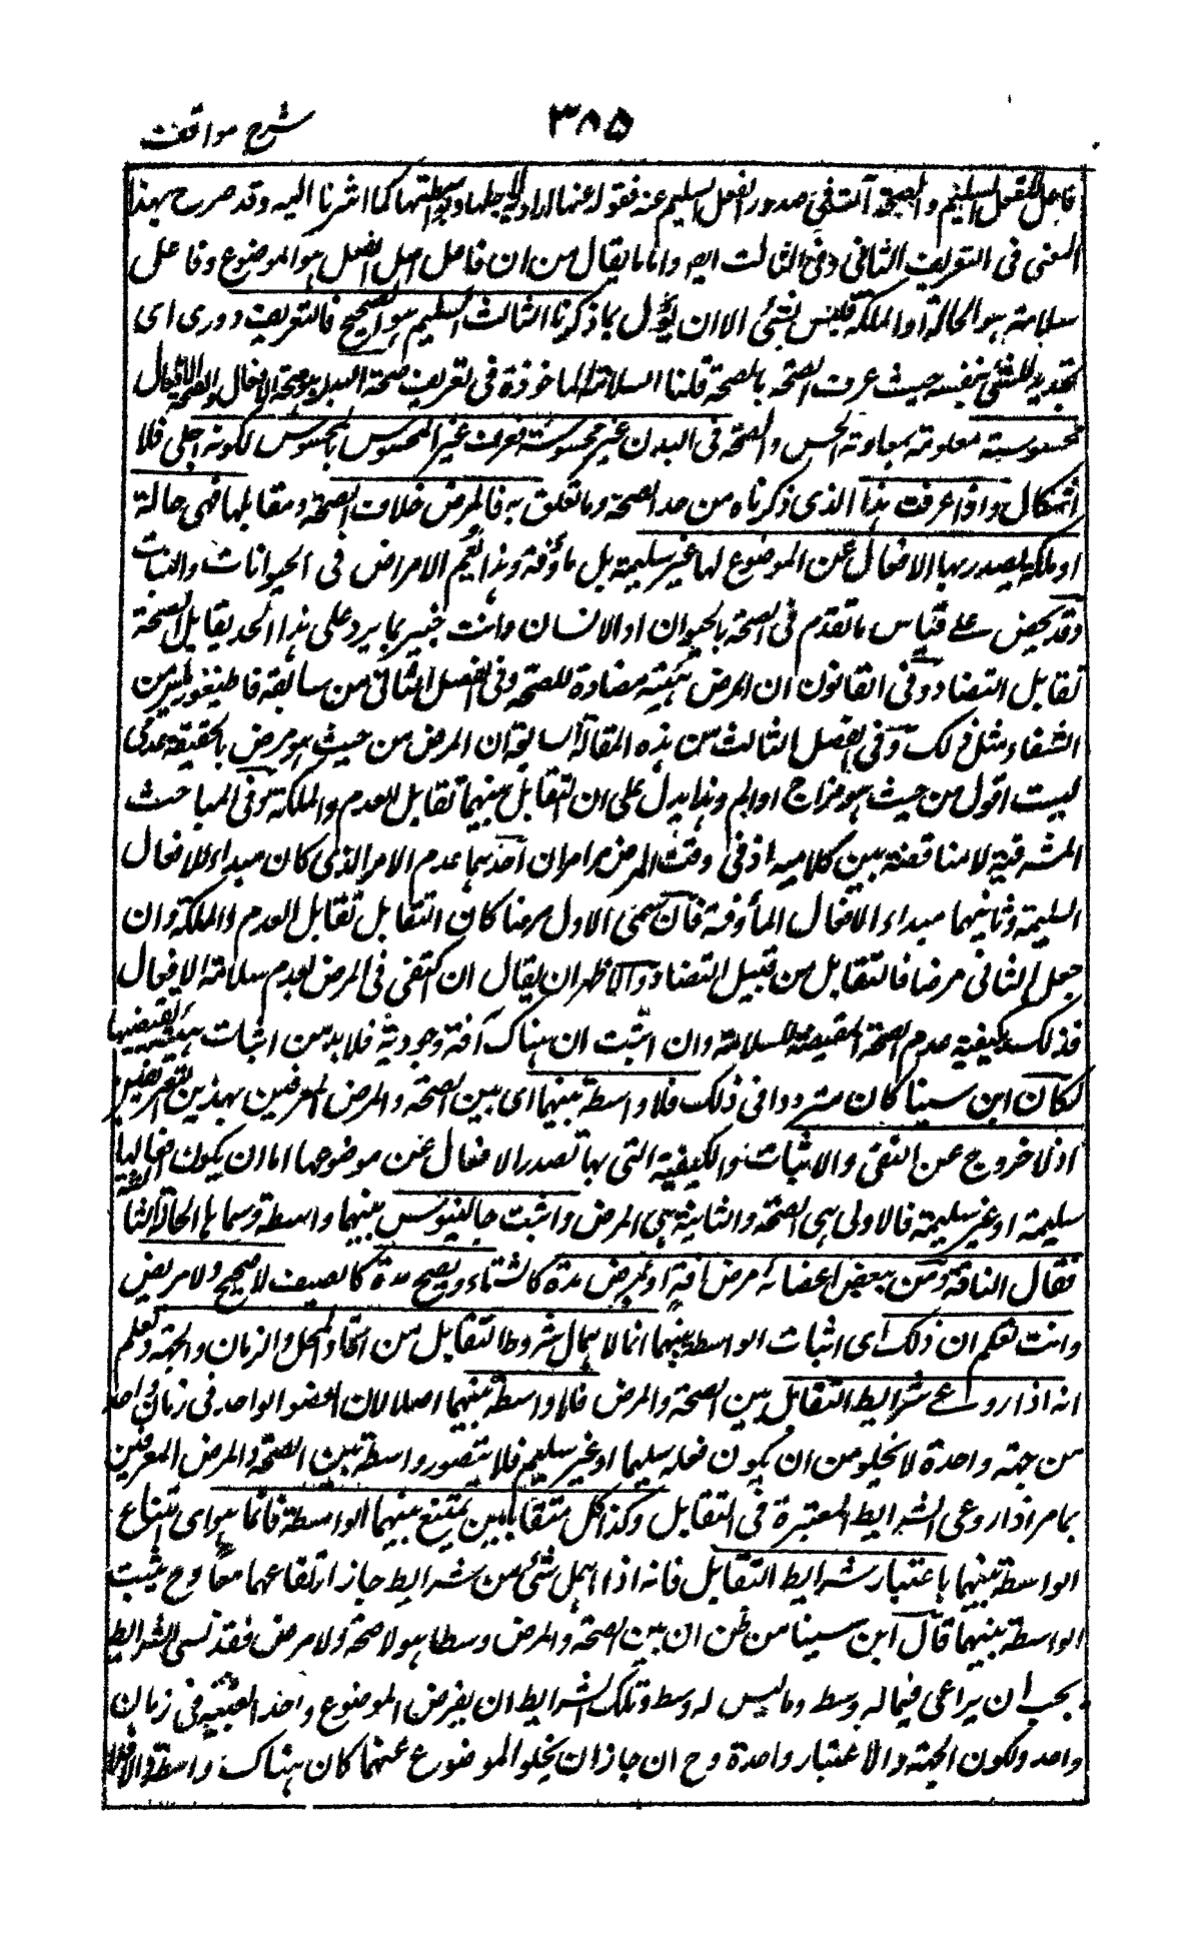 ٣٨٥
شرح مواقف
فاعل للفعل السليم والصحة آلته في صدور الفعل السليم عنه فقوله عنها اراد به لاجلها وبواسطتها كما اشرنا اليه وقد صرح بهذا
المعنى في التعريف الثاني وفي الثالث ايضا واما ما يقال من ان فاعل اصل الفعل هو الموضوع وفاعل
سلامته هو الحالة او الملكة فليس بشئ الا ان يؤول بما ذكرنا الثالث السليم هو الصحيح فالتعريف دوري اى
تحديد للشئ بنفسه حيث عرف الصحة بالصحة قلنا السلامة الماخوذة في تعريف صحة البدن هو صحة الافعال والصحة في الافعال
محسوسة معلومة بمعاونة الحس والصحة في البدن غير محسوسة فعرف غير المحسوس بالمحسوس لكونه اجلى فلا
اشكال واذا عرفت هذا الذي ذكرناه من حد الصحة وما تعلق به فالمرض خلاف الصحة ومقابلها فهى حالة
او ملكة يصدر بها الافعال عن الموضوع لها غير سليمة بل مأوفة وهذا يعم الامراض في الحيوانات والنبات
وقد يخص على قياس ما تقدم في الصحة بالحيوان او الانسان وانت خبير بما يرد على هذا الحد يقابل الصحة
تقابل التضاد وفي القانون ان المرض هيئة مضادة للصحة وفي الفصل الثاني من سابعة قاطيغورياس من
الشفاء مثل ذلك وفي الفصل الثالث من هذه المقالة السابعة ان المرض من حيث هو مرض بالحقيقة عدمى
لست اقول من حيث هو مزاج او الم وهذا يدل على ان التقابل بينهما تقابل العدم والملكة وفي المباحث
المشرقية لا مناقضة بين كلاميه اذ في وقت المرض امران احدهما عدم الامر الذي كان مبداء للافعال
السليمة وثانيهما مبداء الافعال المأوفة فان سمى الاول مرضا كان التقابل تقابل العدم والملكة وان
جعل الثاني مرضا فالتقابل من قبيل التضاد والاظهر ان يقال ان اكتفى في المرض بعدم سلامة الافعال
فذلك يكفيه عدم الصحة المقتضية للسلامة وان اثبت ان هناك آفة وجودية فلا بد من اثبات هيئة تقتضيها
فكان ابن سينا كان مترددا في ذلك فلا واسطة بينهما اى بين الصحة والمرض المعرفين بهذين التعريفين
اذ لا خروج عن النفى والاثبات والكيفية التى بها تصدر الافعال عن موضوعها اما ان يكون افعالها
سليمة او غير سليمة فالاولى هي الصحة والثانية هي المرض واثبت جالينوس بينهما واسطة وسماها الحالة الثالثة
فقال الناقه ومن ببعض اعضائه مرض آفة او يمرض مدة كالشتاء ويصح مدة كالصيف لا صحيح ولا مريض
وانت تعلم ان ذلك اى اثبات الواسطة بينهما انما لاهمال شروط التقابل من اتحاد المحل والزمان والجهة وتعلم
انه اذا روعى شرايط التقابل بين الصحة والمرض فلا واسطة بينهما اصلا لان العضو الواحد في زمان واحد
من جهة واحدة لا يخلو من ان يكون فعله سليما او غير سليم فلا يتصور واسطة بين الصحة والمرض المعرفين
بما مر اذا روعى الشرايط المعتبرة في التقابل وكذا كل متقابلين يمتنع بينهما الواسطة فانما هو اى امتناع
الواسطة بينهما باعتبار شرايط التقابل فانه اذا اهمل شئ من شرايط جاز ارتفاعهما معا وح يثبت
الواسطة بينهما قال ابن سينا من ظن ان بين الصحة والمرض وسطا هو لا صحة ولا مرض فقد نسى الشرايط
يجب ان يراعى فيما له وسط وما ليس له وسط وتلك الشرايط ان يفرض الموضوع واحدا بعينه في زمان
واحد وتكون الجهة والاعتبار واحدة وح ان جاز ان يخلو الموضوع عنهما كان هناك واسطة والا فلا